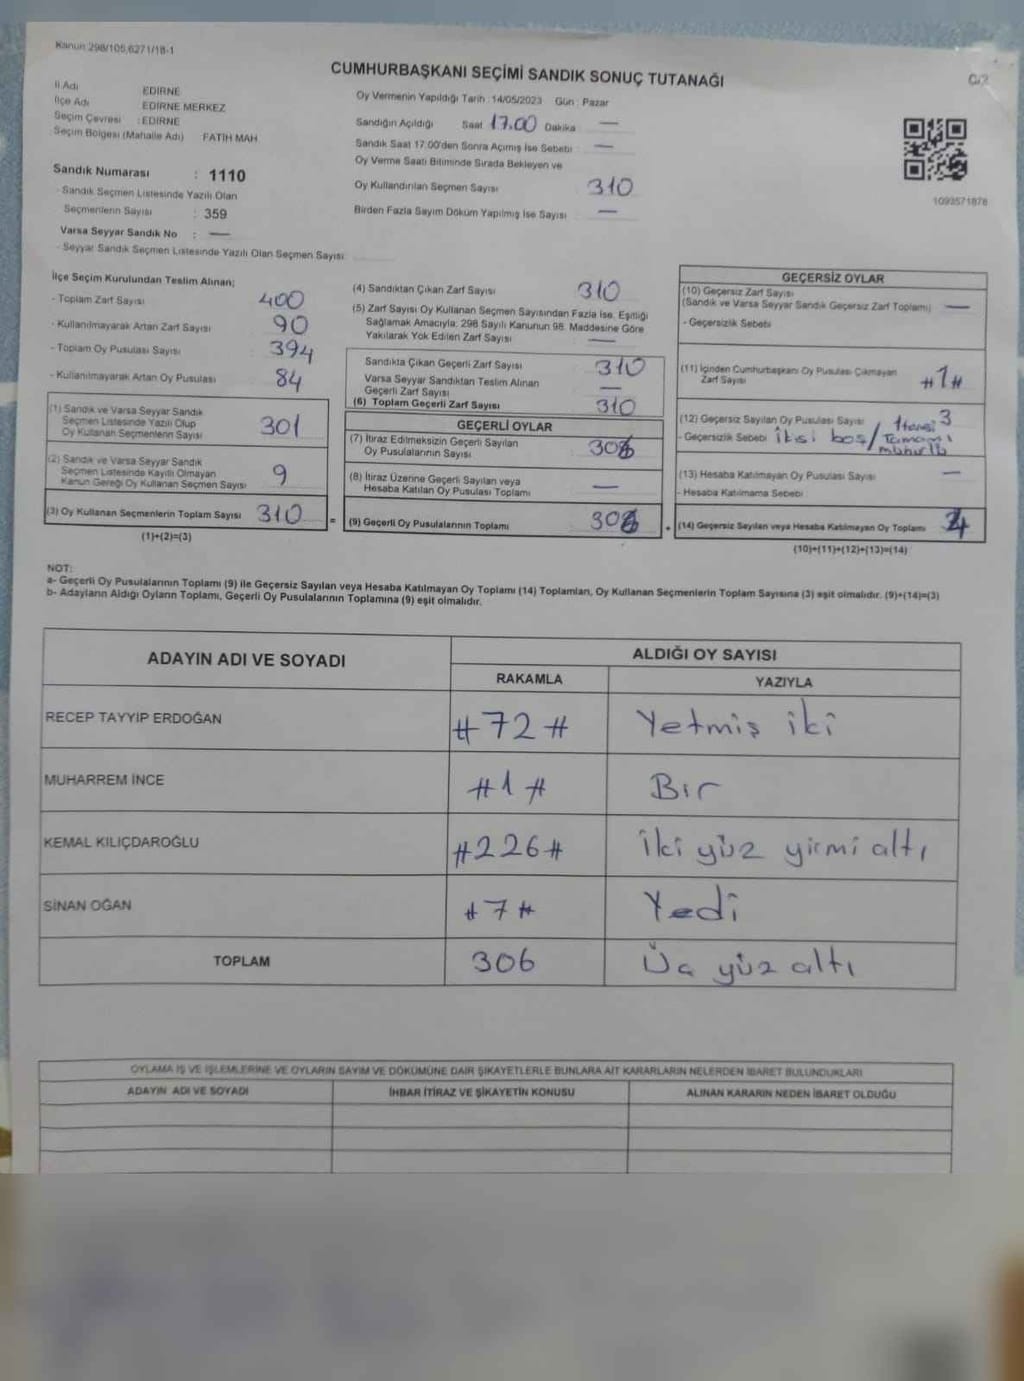 Kanun:298/105,6271/18-1
CUMHURBAŞKANI SEÇİMİ SANDIK SONUÇ TUTANAĞI
İl Adı EDİRNE
İlçe Adı EDİRNE MERKEZ
Seçim Çevresi : EDİRNE
Seçim Bölgesi (Mahalle Adı) FATİH MAH
Sandık Numarası : 1110
- Sandık Seçmen Listesinde Yazılı Olan
Seçmenlerin Sayısı : 359
Varsa Seyyar Sandık No : —
- Seyyar Sandık Seçmen Listesinde Yazılı Olan Seçmen Sayısı:
Oy Vermenin Yapıldığı Tarih : 14/05/2023 Gün : Pazar
Sandığın Açıldığı Saat 17.00 Dakika —
Sandık Saat 17.00'den Sonra Açımış İse Sebebi : —
Oy Verme Saati Bitiminde Sırada Bekleyen ve
Oy Kullandırılan Seçmen Sayısı 310
Birden Fazla Sayım Döküm Yapılmış İse Sayısı —
1093571878
İlçe Seçim Kurulundan Teslim Alınan;
- Toplam Zarf Sayısı 400
- Kullanılmayarak Artan Zarf Sayısı 90
- Toplam Oy Pusulası Sayısı 394
- Kullanılmayarak Artan Oy Pusulası 84
(1) Sandık ve Varsa Seyyar Sandık
Seçmen Listesinde Yazılı Olup
Oy Kullanan Seçmenlerin Sayısı 301
(2) Sandık ve Varsa Seyyar Sandık
Seçmen Listesinde Kayıtlı Olmayan
Kanun Gereği Oy Kullanan Seçmen Sayısı 9
(3) Oy Kullanan Seçmenlerin Toplam Sayısı 310 =
(1)+(2)=(3)
(4) Sandıktan Çıkan Zarf Sayısı 310
(5) Zarf Sayısı Oy Kullanan Seçmen Sayısından Fazla İse, Eşitliği
Sağlamak Amacıyla, 298 Sayılı Kanunun 98. Maddesine Göre
Yakılarak Yok Edilen Zarf Sayısı —
Sandıkta Çıkan Geçerli Zarf Sayısı 310
Varsa Seyyar Sandıktan Teslim Alınan
Geçerli Zarf Sayısı —
(6) Toplam Geçerli Zarf Sayısı 310
GEÇERLİ OYLAR
(7) İtiraz Edilmeksizin Geçerli Sayılan
Oy Pusulalarının Sayısı 306
(8) İtiraz Üzerine Geçerli Sayılan veya
Hesaba Katılan Oy Pusulası Toplamı —
(9) Geçerli Oy Pusulalarının Toplamı 306 +
GEÇERSİZ OYLAR
(10) Geçersiz Zarf Sayısı
(Sandık ve Varsa Seyyar Sandık Geçersiz Zarf Toplamı) —
- Geçersizlik Sebebi
(11) İçinden Cumhurbaşkanı Oy Pusulası Çıkmayan
Zarf Sayısı #1#
(12) Geçersiz Sayılan Oy Pusulası Sayısı 3
- Geçersizlik Sebebi İkisi boş / 1 tanesi
Tamamı
mühürlü
(13) Hesaba Katılmayan Oy Pusulası Sayısı —
- Hesaba Katılmama Sebebi
(14) Geçersiz Sayılan veya Hesaba Katılmayan Oy Toplamı 4
(10)+(11)+(12)+(13)=(14)
NOT:
a- Geçerli Oy Pusulalarının Toplamı (9) ile Geçersiz Sayılan veya Hesaba Katılmayan Oy Toplamı (14) Toplamları, Oy Kullanan Seçmenlerin Toplam Sayısına (3) eşit olmalıdır. (9)+(14)=(3)
b- Adayların Aldığı Oyların Toplamı, Geçerli Oy Pusulalarının Toplamına (9) eşit olmalıdır.
ADAYIN ADI VE SOYADI ALDIĞI OY SAYISI
RAKAMLA YAZIYLA
RECEP TAYYIP ERDOĞAN #72# Yetmiş iki
MUHARREM İNCE #1# Bir
KEMAL KILIÇDAROĞLU #226# İki yüz yirmi altı
SİNAN OĞAN #7# Yedi
TOPLAM 306 Üç yüz altı
OYLAMA İŞ VE İŞLEMLERİNE VE OYLARIN SAYIM VE DÖKÜMÜNE DAİR ŞİKAYETLERLE BUNLARA AİT KARARLARIN NELERDEN İBARET BULUNDUKLARI
ADAYIN ADI VE SOYADI İHBAR İTİRAZ VE ŞİKAYETİN KONUSU ALINAN KARARIN NEDEN İBARET OLDUĞU